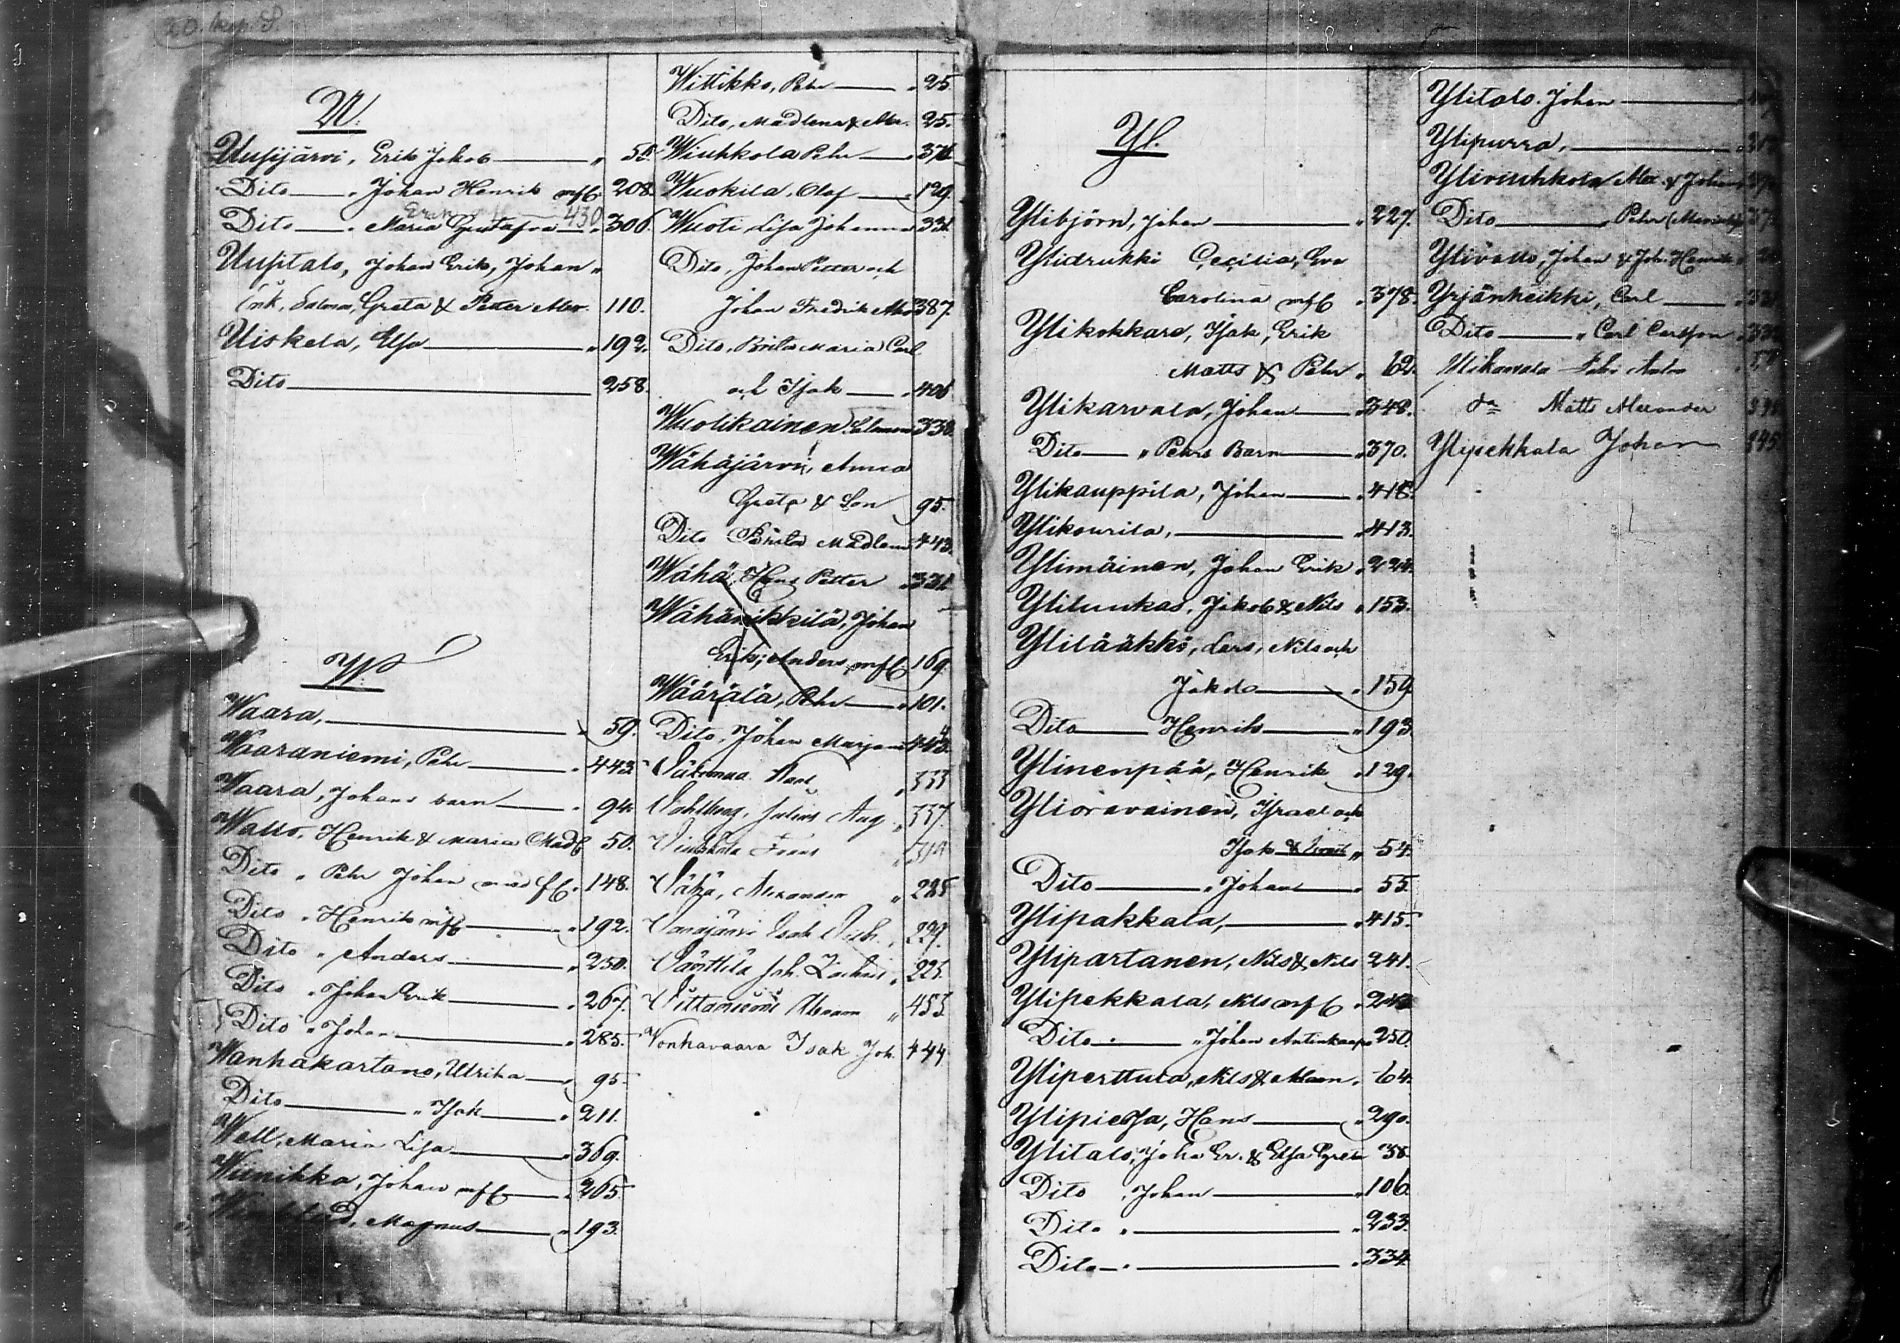 U.
Uusijärvi, Erik Jakob " 50
Dito " Johan Henrik mfl. 208.
Erik 430
Dito " Maria Gustafva " 306.
Uusitalo, Johan Erik, Johan "
Erik, Salmon, Greta & Petter Alex. 110.
Uiskela, Elsa " 192.
Dito 258.
W.
Waara, 59.
Waaraniemi, Pehr " 443.
Waara, Johans barn " 94.
Watto, Henrik & Maria Madl 50.
Dito " Pehr Johan med fl. 148.
Dito " Henrik mfl " 192.
Dito " Anders " 250.
Dito " Johan Erik " 267.
Dito " Johan " 285.
Wanhakartano, Ulrika " 95.
Dito " Isak " 211.
Well, Maria Lisa " 369.
Wiinikka, Johan mfl " 265.
Magnus " 193.
Wittikko, Pehr " 25.
Dito, Madlena & Alex. 25.
Wiuhkola Pehr " 376
Wuokila, Olaf " 129.
Wuoti Lisa Johanna 331.
Dito, Johan Petter och
Johan Fredrik Alex 387.
Dito, Brita Maria Carl
och Isak " 406
Wuolikainen Salomon 338.
Wähäjärvi, Anna
Greta & Son 95.
Dito Brita Madlena 443.
Wähä, Hans Petter " 331.
Wähänikkilä, Johan
Erik, Anders mfl 169.
Wäärälä, Pehr " 101.
Dito, Johan Marjan 443.
" 333
Wahlberg, Julius Aug " 337.
" 319
Vähä, Alexander " 285
Vanajärvi Isak " 229.
Joh. Zachris " 225.
Vittaniemi Abram " 453
Vonkavaara Isak Joh. 444
Y.
Ylibjörn, Johan " 227.
Ylidrukki Cecilia, Eva
Carolina mfl " 378.
Ylikokkare, Isak, Erik
Matts & Pehr " 62.
Ylikarvala, Johan " 348.
Dito " Pehrs Barn " 370.
Ylikauppila, Johan " 418.
Ylikourila, " 413.
Ylimäinen, Johan Erik " 224.
Yliluukas, Jakob & Nils " 153.
Ylilääkkö, Lars, Nils och
Jakob " 159
Dito Henrik " 193
Ylinenpää, Henrik " 129.
Ylioravainen, Israel och
Isak & " 54.
Dito " Johan " 55.
Ylipakkala, " 415.
Ylipartanen, Nils & Nils 241.
Ylipekkala, Nils mfl "
Dito " Johan Antinkaapo 250.
Yliperttula, Nils & Abram. 64.
Ylipiessa, Hans " 290.
Ylitalo, Joha Er. & Elsa Greta 38.
Dito " Johan " 106.
Dito " " 233.
Dito " " 334
Ylitalo. Johan
Ylipurra,
Yliviuhkola Alex. & Johan
Dito " Pehr
Johan & Joh. Henrik
Yrjänheikki, Carl " 331
Dito " Carl Carlsson " 332
Ylikarvala
do Matts Alexander
Ylipekkala Johan 445